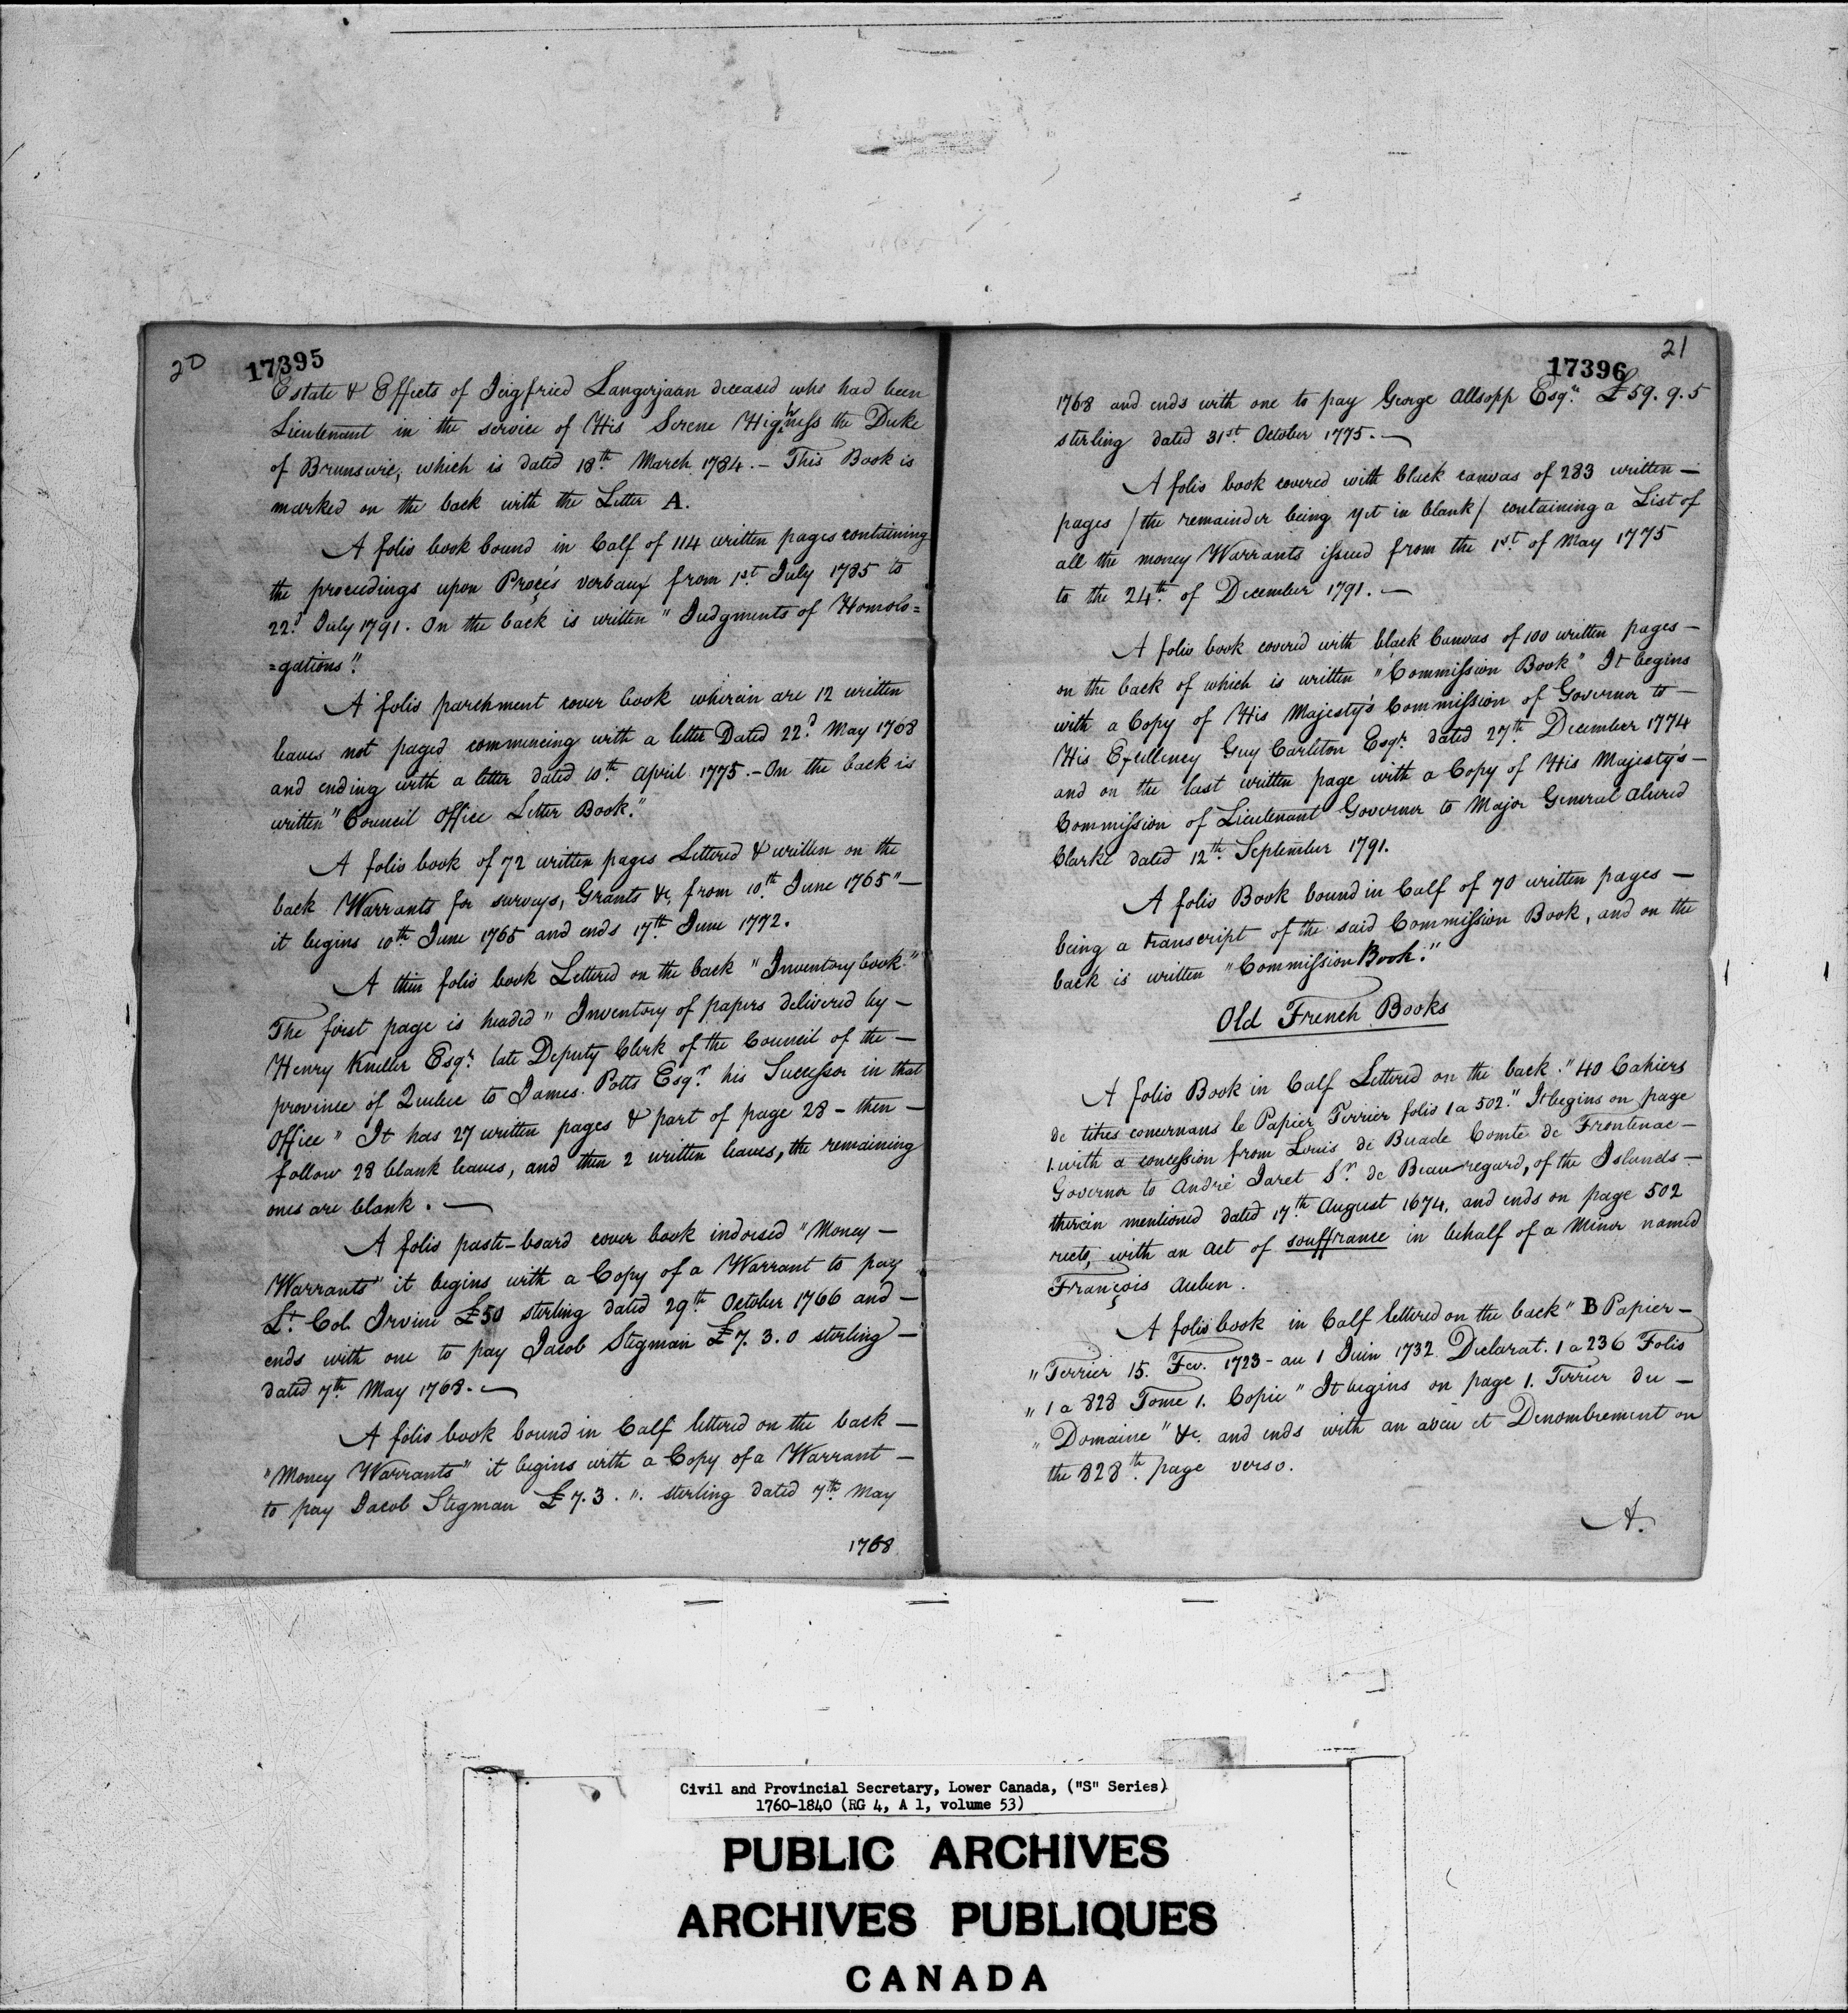 20
17395
Estate & Effects of Seigfried Langerjaan deceased who had been
Lieutenant in the service of His Serene Highness the Duke
of Brunswic, which is dated 18th March 1784. - This Book is
marked on the back with the Letter A.
A folio book bound in Calf of 114 written pages containing
the proceedings upon Procés verbaux from 1st July 1785 to
22d July 1791. On the back is written "Judgments of Homolo=
=gations".
A folio parchment cover book wherein are 12 written
leaves not paged commencing with a letter Dated 22d May 1768
and ending with a letter dated 10th April 1775. - On the back is
written "Council Office Letter Book."
A folio book of 72 written pages Lettered & written on the
back Warrants for surveys, Grants &c, from 10th June 1765" -
it begins 10th June 1765 and ends 17th June 1772.
A thin folio book Lettered on the back "Inventory book."
The first page is headed "Inventory of papers delivered by -
Henry Kneller Esqr late Deputy Clerk of the Council of the -
province of Quebec to James Potts Esqr his Successor in that
Office" It has 27 written pages & part of page 28 - then -
follow 28 blank leaves, and then 2 written leaves, the remaining
ones are blank. -
A folio paste-board cover book indorsed "Money -
Warrants" it begins with a Copy of a Warrant to pay
Lt. Col. Irvine £50 sterling dated 29th October 1766 and -
ends with one to pay Jacob Stegman £7. 3. 0 sterling -
dated 7th May 1768. -
A folio book bound in Calf lettered on the back -
"Money Warrants" it begins with a Copy of a Warrant -
to pay Jacob Stegman £7. 3. ". sterling dated 7th May
1768
21
17396
1768 and ends with one to pay George Allsopp Esqr. £59. 9. 5
sterling dated 31st October 1775. -
A folio book covered with black canvas of 283 written -
pages / the remainder being yet in blank / containing a List of
all the money Warrants issued from the 1st of May 1775
to the 24th of December 1791. -
A folio book covered with black Canvas of 100 written pages -
on the back of which is written "Commission Book" It begins
with a Copy of His Majesty's Commission of Governor to -
His Excellency Guy Carleton Esqr. dated 27th December 1774
and on the last written page with a Copy of His Majesty's -
Commission of Lieutenant Governor to Major General Alured
Clarke dated 12th September 1791.
A folio Book bound in Calf of 70 written pages -
being a transcript of the said Commission Book, and on the
back is written "Commission Book."
Old French Books
A folio Book in Calf Lettered on the back "40 Cahiers
de titres concernans le Papier Terrier folio 1 a 502." It begins on page
1. with a concession from Louis de Buade Comte de Frontenac -
Governor to André Jaret Sr. de Beauregard, of the Islands -
therein mentioned dated 17th August 1674, and ends on page 502
recto, with an Act of souffrance in behalf of a Minor named
François Auben.
A folio book in Calf lettered on the back "B Papier -
"Terrier 15. Fev. 1723 - au 1 Juin 1732 Declarat. 1 a 236 Folio
"1 a 828 Tome 1. Copie" It begins on page 1. Terrier du -
"Domaine" &c. and ends with an aveu et Denombrement on
the 828th page verso.
A.
Civil and Provincial Secretary, Lower Canada, ("S" Series)
1760-1840 (RG 4, A 1, volume 53)
PUBLIC ARCHIVES
ARCHIVES PUBLIQUES
CANADA